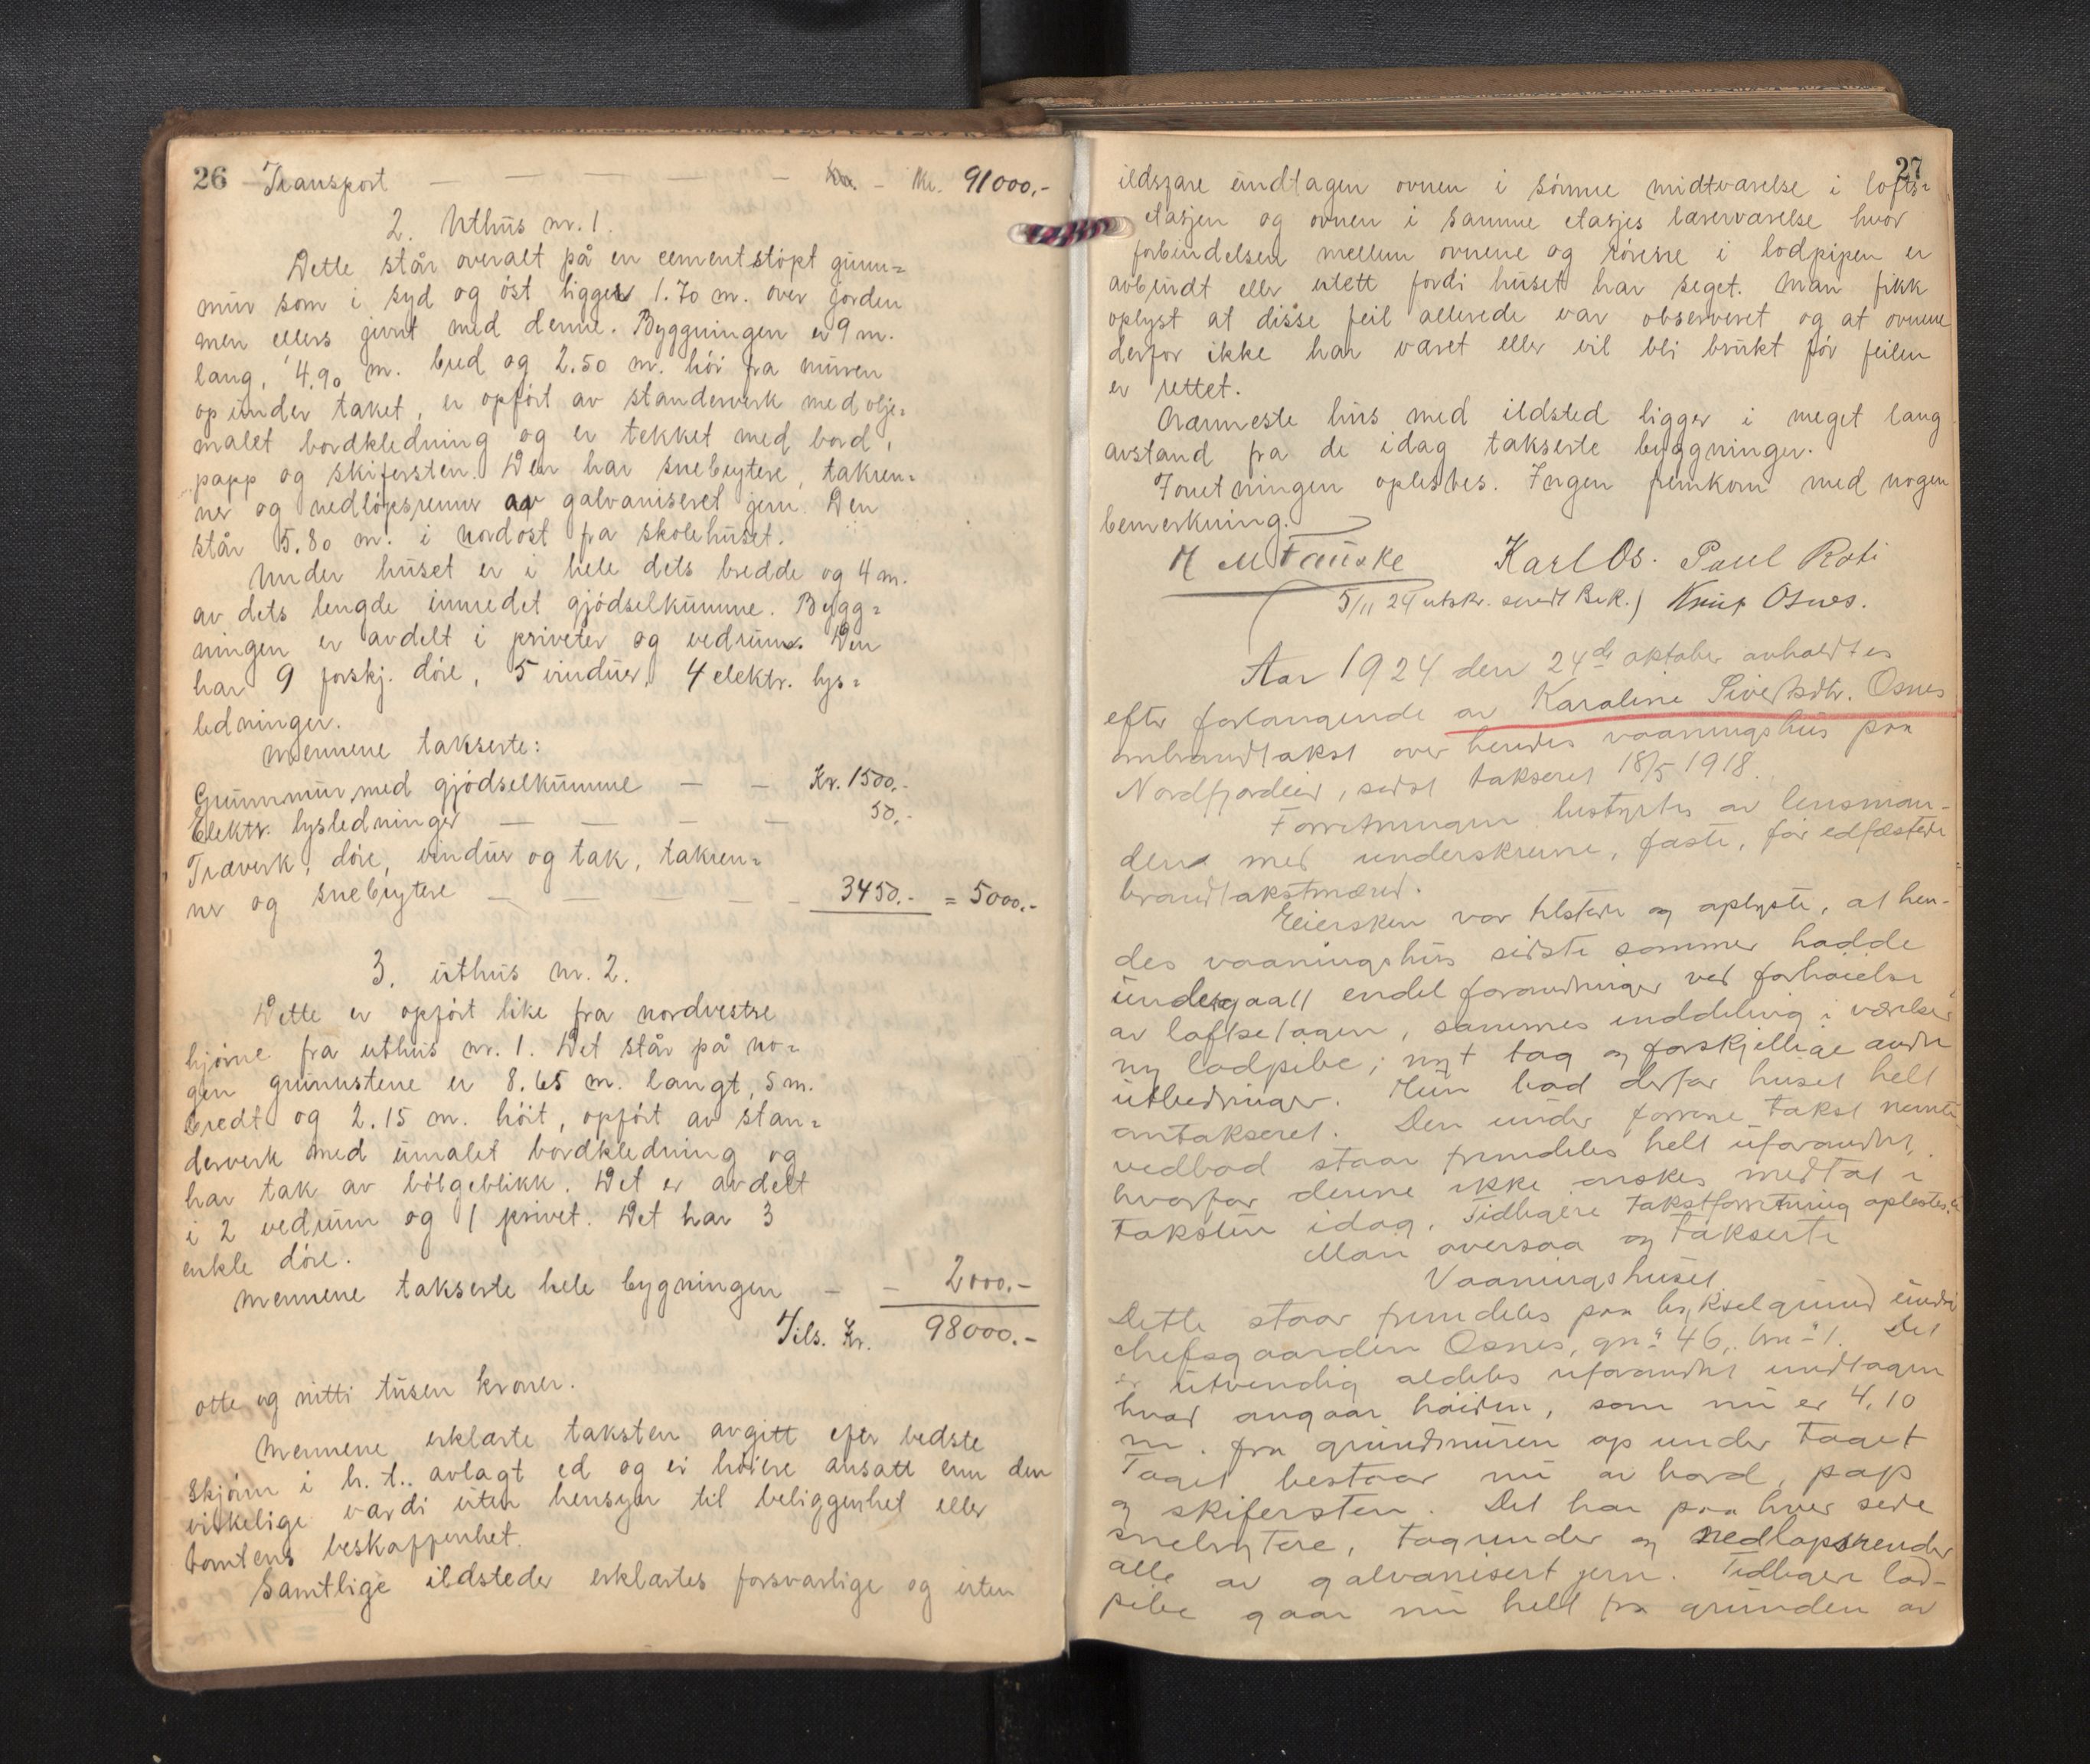 26 Transport — — — — — Kr. 91000.-
2. Uthus nr. 1.
Dette står overalt på en cementstöpt grunn=
mur som i syd og öst ligger 1.70 m. over jorden
men ellers jevnt med denne. Byggningen er 9 m.
lang, 4.90 m. bred og 2.50 m. höi fra muren
op under taket, er opfört av standerverk med olje=
malet bordkledning og er tekket med bord,
papp og skifersten. Den har snebrytere, takren=
ner og nedlöpsrenner av galvaniseret jern. Den
står 5.80 m. i nordost fra skolehuset.
Under huset er i hele dets bredde og 4 m.
av dets lengde innredet gjödselkumme. Bygg=
ningen er avdelt i priveter og vedrum. Den
har 9 forskj. döre, 5 vinduer, 4 elektr. lys=
ledninger.
Mennene takserte:
Grunnmur med gjödselkumme — — Kr. 1500.-
Elektr. lysledninger — — — — 50.-
Træverk, döre, vinduer og tak, takren=
ner og snebrytere — — — — 3450.- = 5000.-
3. uthus nr. 2.
Dette er opfört like fra nordvestre
hjörne fra uthus nr. 1. Det står på no=
gen grunnstene er 8.65 m. langt, 5 m.
bredt og 2.15 m. höit, opfört av stan=
derverk med umalet bordkledning og
har tak av bölgeblikk. Det er avdelt
i 2 vedrum og 1 privet. Det har 3
enkle döre.
Mennene takserte hele bygningen — — 2000.-
Tils. Kr. 98000.-
otte og nitti tusen kroner.
Mennene erklærte taksten avgitt efter bedste
skjönn i h. t. avlagt ed og ei höiere ansatt enn den
virkelige værdi uten hensyn til beliggenhet eller
tomtens beskaffenhet.
Samtlige ildsteder erklærtes forsvarlige og uten
27
ildsfare undtagen ovnen i sönnre midtværelse i lofts=
etasjen og ovnen i samme etasjes lærerværelse hvor
forbindelsen mellem ovnene og rörene i lodpipen er
avbrudt eller utett fordi huset har seget. Man fikk
oplyst at disse feil allerede var observeret og at ovnene
derfor ikke har været eller vil bli brukt för feilen
er rettet.
Nærmeste hus med ildsted ligger i meget lang
avstand fra de idag takserte byggninger.
Forretningen oplæstes. Ingen fremkom med nogen
bemerkning.
M Fauske Karl Os. Paul Roti
5/11 24 utskr. sendt B.k.) Knut Osnes.
Aar 1924 den 24de oktober avholdtes
efter forlangende av Karaline Sivertsdtr. Osnes
ombrandtakst over hendes vaaningshus paa
Nordfjordeid, sidst takseret 18/5 1918.
Forretningen bestyrtes av lensman-
den med underskrevne, faste, før edfæstede
brandtakstmænd.
Eiersken var tilstede og oplyste, at hen-
des vaaningshus sidste sommer hadde
undergaatt endel forandringer ved forhøielse
av loftsetagen, sammes inddeling i værelser
ny lodpibe, nyt tag og forskjellige andre
utbedringer. Hun bad derfor huset helt
omtakseret. Den under forrene takst nævnte
vedbod staar fremdeles helt uforandret,
hvorfor denne ikke ønskes medtat i
taksten idag. Tidligere takstforretning oplæstes.
Man oversaa og takserte
Vaaningshuset
Dette staar fremdeles paa bykselgrund under
chefsgaarden Osnes, gr.no 46, br.no 1. Det
er utvendig aldeles uforandret undtagen
hvad angaar høiden, som nu er 4,10
m. fra grundmuren op under taget
Taget bestaar nu av bord, pap
og skifersten. Det har paa hver side
snebrytere, tagrender og nedlopsrender
alle av galvanisert jern. Tidligere lod-
pibe gaar nu helt fra grunden av